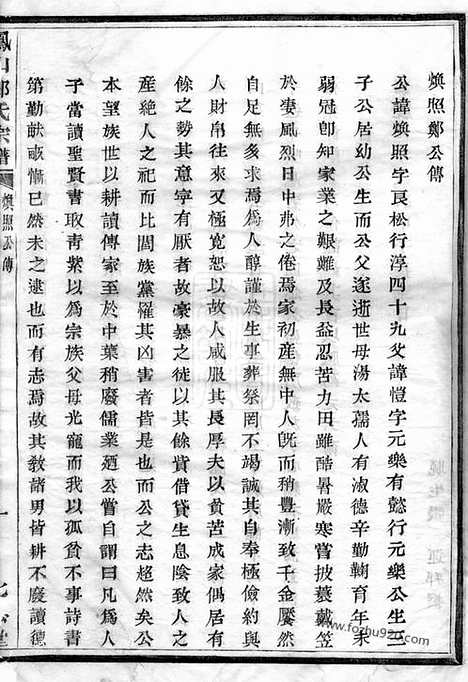 煥照鄭公傳
公諱煥照字良松行淳四十九父諱愷字元樂有懿行元樂公生三
子公居幼公生而公父遂逝世母湯太孺人有淑德辛勤鞠育年未
弱冠卽知家業之艱難及長益忍苦力田雖酷暑嚴寒嘗披蓑戴笠
於凄風烈日中弗之倦焉家初產無中人旣而稍豐漸致千金饜然
自足無多求焉爲人醇謹於生事葬祭罔不竭誠其自奉極儉約與
人財帛往來又極寬恕以故人咸服其長厚夫以貧苦成家偶居有
餘之勢其意寧有厭者故豪暴之徒以其餘貲借貸生息陰致人之
產絕人之祀而比閭族黨罹其凶害者皆是公之志超然矣公
本望族世以耕讀傳家至於中葉稍廢儒業廼公嘗自謂曰凡爲人
子當讀聖賢書取靑紫以爲宗族父母光寵而我以孤貧不事詩書
第勤猷畝愼已然未之逮也而有志焉故其敎諸男皆耕不廢讀德
鳳山鄭氏宗譜
煥照公傳
一
www.fozhu920.com